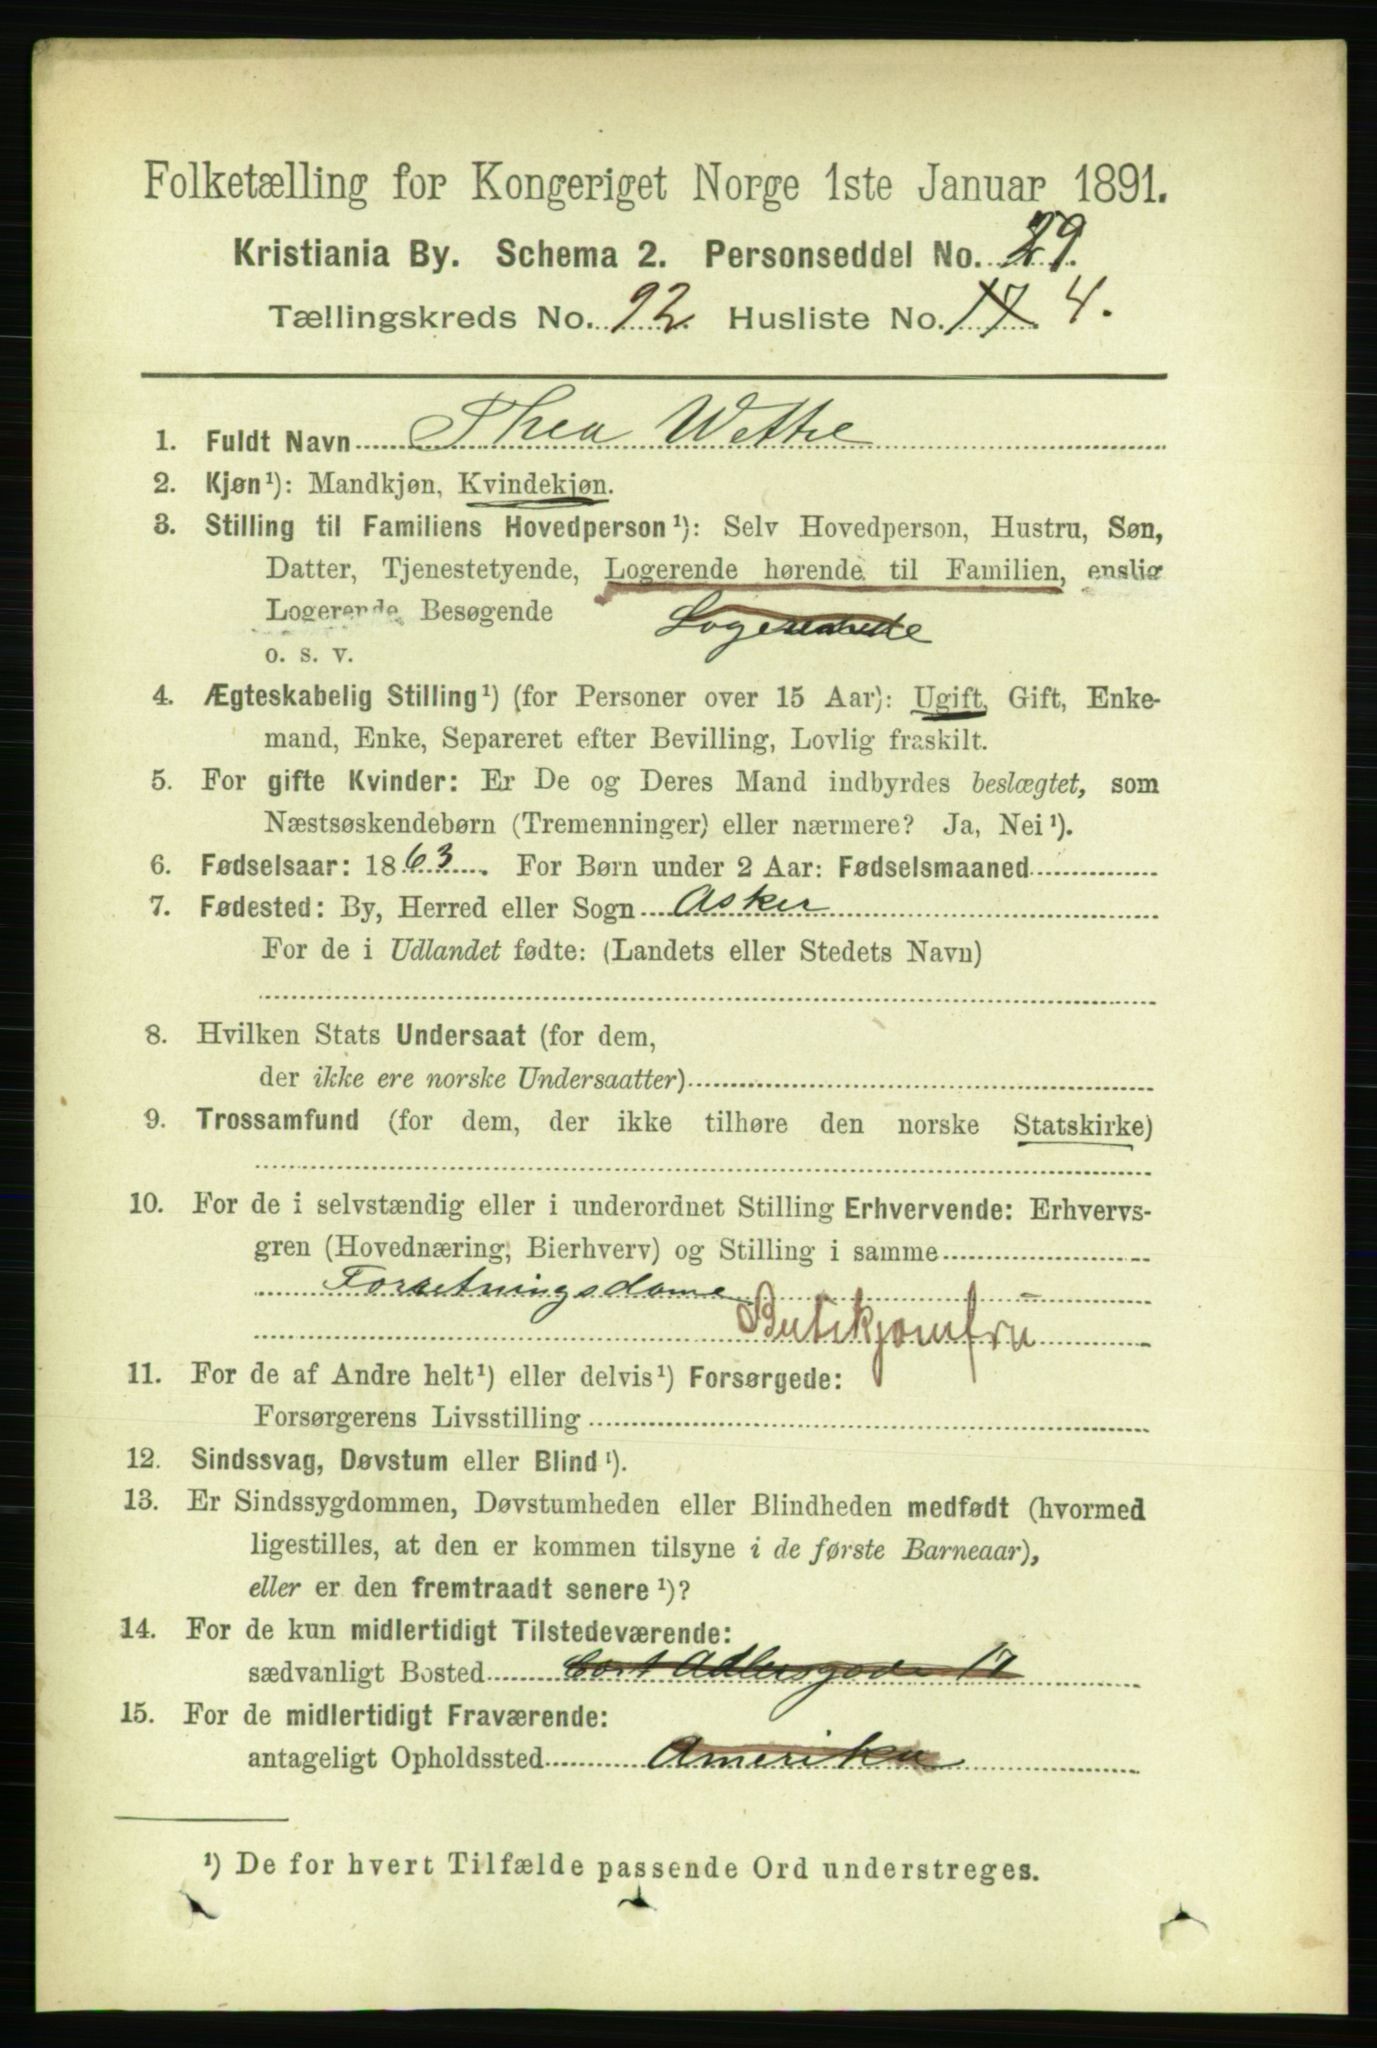 Folketælling for Kongeriget Norge 1ste Januar 1891.
Kristiania By. Schema 2. Personseddel No. 29.
Tællingskreds No. 92 Husliste No. 17 4.
1. Fuldt Navn Thea Wettre
2. Kjøn¹): Mandkjøn, Kvindekjøn.
3. Stilling til Familiens Hovedperson¹): Selv Hovedperson, Hustru, Søn,
Datter, Tjenestetyende, Logerende hørende til Familien, enslig
Logerende, Besøgende Logerende
o. s. v.
4. Ægteskabelig Stilling¹) (for Personer over 15 Aar): Ugift, Gift, Enke-
mand, Enke, Separeret efter Bevilling, Lovlig fraskilt.
5. For gifte Kvinder: Er De og Deres Mand indbyrdes beslægtet, som
Næstsøskendebørn (Tremenninger) eller nærmere? Ja, Nei¹).
6. Fødselsaar: 1863. For Børn under 2 Aar: Fødselsmaaned
7. Fødested: By, Herred eller Sogn Asker
For de i Udlandet fødte: (Landets eller Stedets Navn)
8. Hvilken Stats Undersaat (for dem,
der ikke ere norske Undersaatter)
9. Trossamfund (for dem, der ikke tilhøre den norske Statskirke)
10. For de i selvstændig eller i underordnet Stilling Erhvervende: Erhvervs-
gren (Hovednæring, Bierhverv) og Stilling i samme
Forretningsdame
Butikjomfru
11. For de af Andre helt¹) eller delvis¹) Forsørgede:
Forsørgerens Livsstilling
12. Sindssvag, Døvstum eller Blind¹).
13. Er Sindssygdommen, Døvstumheden eller Blindheden medfødt (hvormed
ligestilles, at den er kommen tilsyne i de første Barneaar),
eller er den fremtraadt senere¹)?
14. For de kun midlertidigt Tilstedeværende:
sædvanligt Bosted Cort Adlersgade 17
15. For de midlertidigt Fraværende:
antageligt Opholdssted Amerika
¹) De for hvert Tilfælde passende Ord understreges.